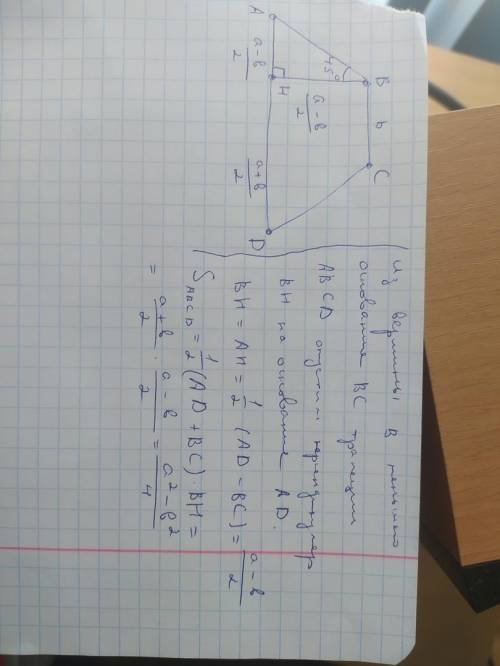 A
B
b
C
45°
a-b/2
H
a-b/2
a+b/2
D
Из вершины B меньшего
основания BC трапеции
ABCD опустим перпендикуляр
BH на основание AD.
BH = AH = 1/2 (AD - BC) = a-b/2
S ABCD = 1/2 (AD + BC) · BH =
= a+b/2 · a-b/2 = a²-b²/4